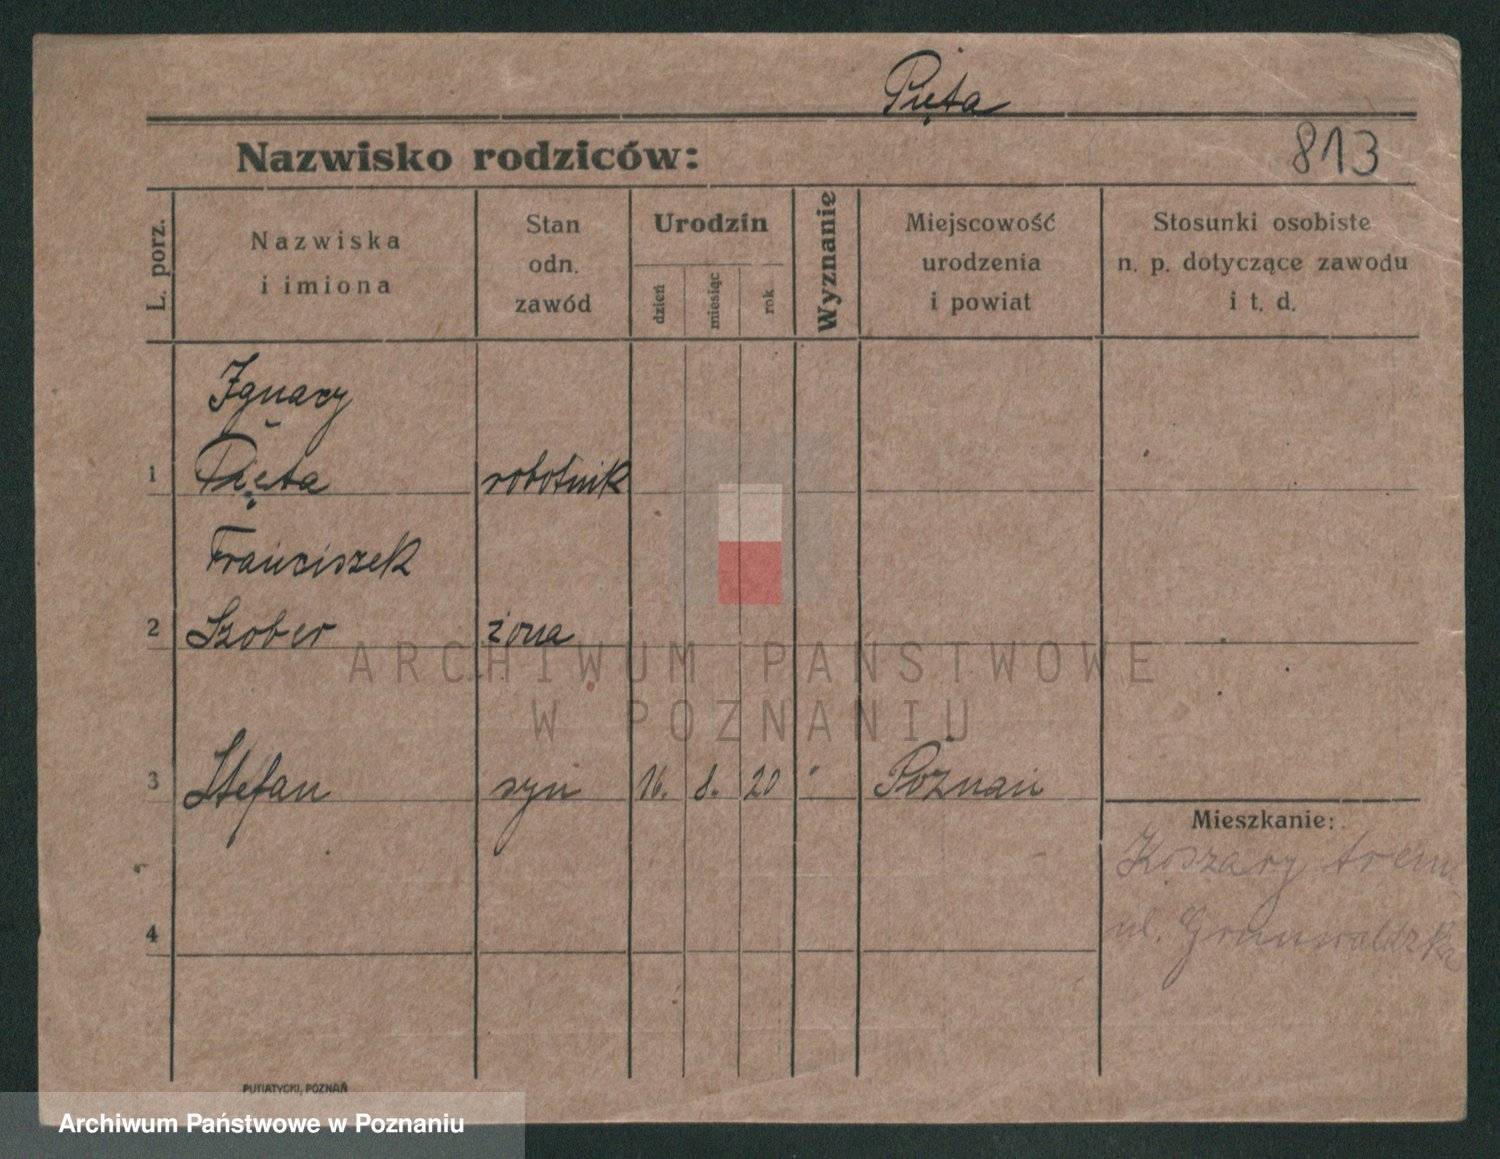 Pięta
Nazwisko rodziców:
813
L. porz.
Nazwiska
i imiona
Stan
odn.
zawód
Urodzin
dzień
miesiąc
rok
Wyznanie
Miejscowość
urodzenia
i powiat
Stosunki osobiste
n. p. dotyczące zawodu
i t. d.
Ignacy
1 Pięta robotnik
Franciszek
2 Szober żona
ARCHIWUM PAŃSTWOWE
W POZNANIU
3 Stefan syn 16. 8. 20 " Poznań
Mieszkanie:
Koszary
4 ul. Grunwaldzka
PUTIATYCKI, POZNAŃ
Archiwum Państwowe w Poznaniu